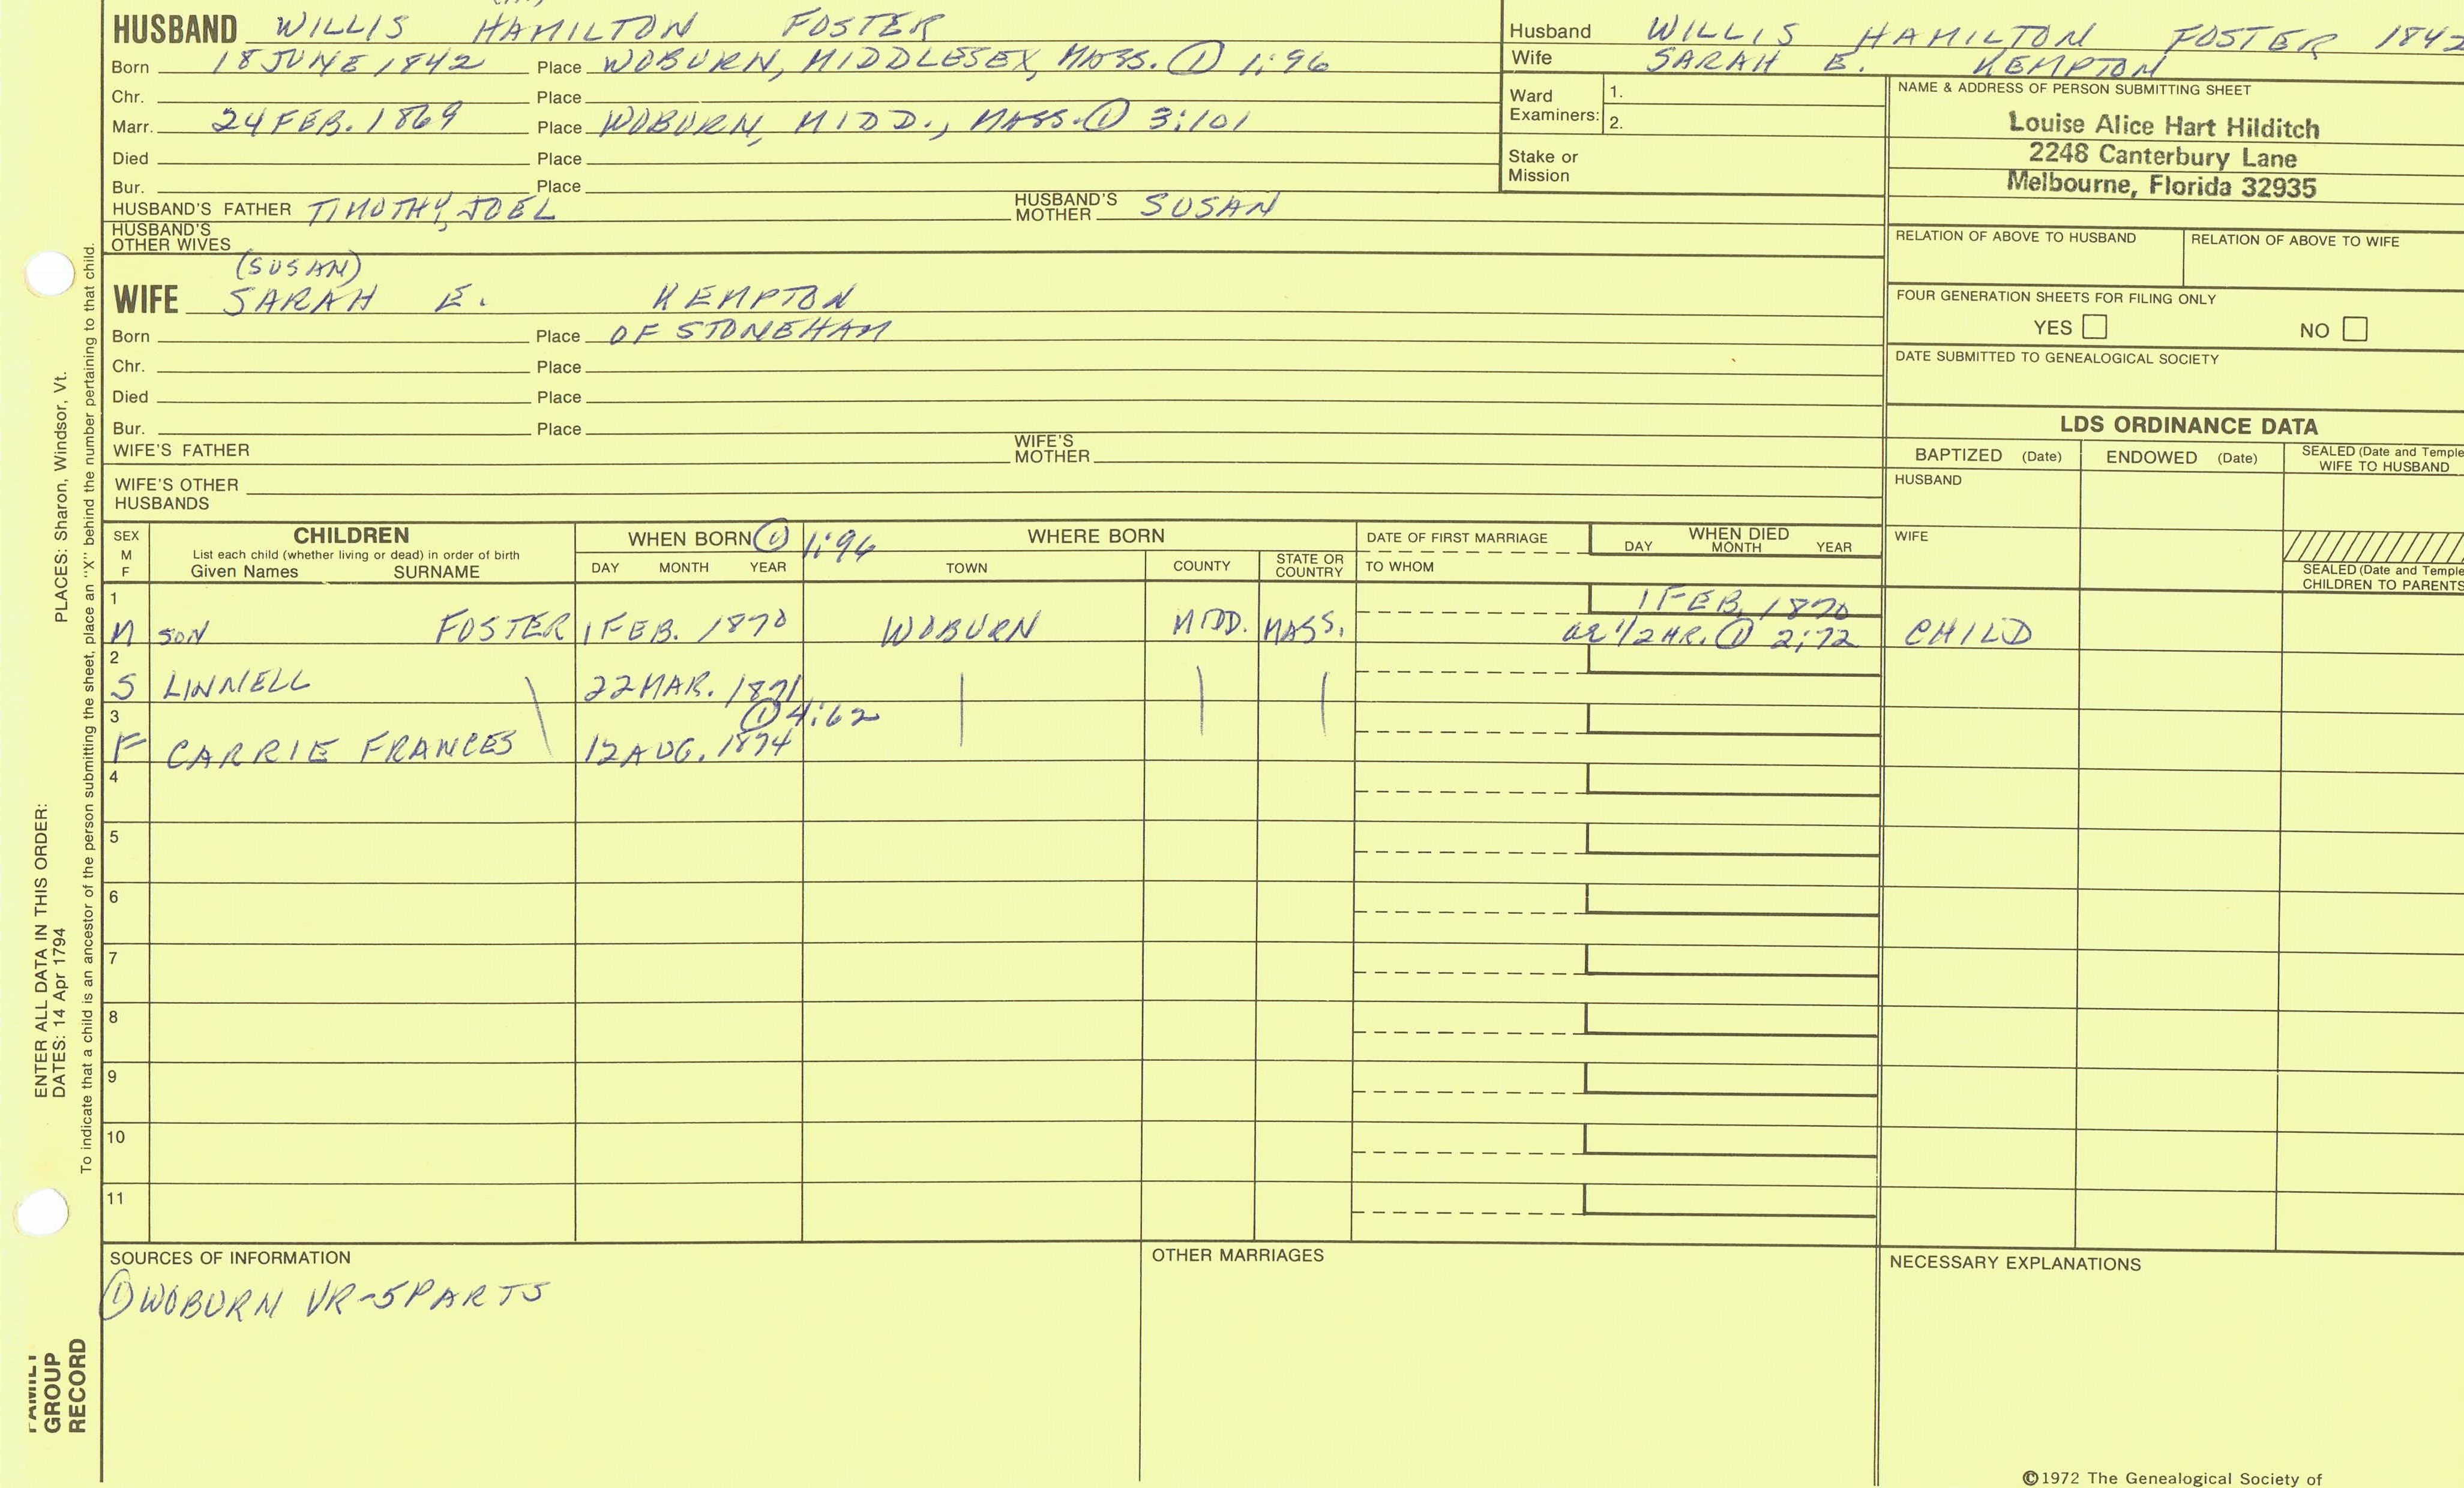 HUSBAND WILLIS HAMILTON FOSTER
Born 18 JUNE 1842 Place WOBURN, MIDDLESEX, MASS. ① 1:96
Chr. Place
Marr. 24 FEB. 1869 Place WOBURN, MIDD., MASS. ① 3:101
Died Place
Bur. Place
HUSBAND'S FATHER TIMOTHY, JOEL HUSBAND'S MOTHER SUSAN
HUSBAND'S OTHER WIVES
(SUSAN)
WIFE SARAH E. KEMPTON
Born Place OF STONEHAM
Chr. Place
Died Place
Bur. Place
WIFE'S FATHER WIFE'S MOTHER
WIFE'S OTHER HUSBANDS
Husband WILLIS HAMILTON FOSTER 1842
Wife SARAH E. KEMPTON
Ward Examiners: 1.
2.
Stake or Mission
NAME & ADDRESS OF PERSON SUBMITTING SHEET
Louise Alice Hart Hilditch
2248 Canterbury Lane
Melbourne, Florida 32935
RELATION OF ABOVE TO HUSBAND RELATION OF ABOVE TO WIFE
FOUR GENERATION SHEETS FOR FILING ONLY
YES NO
DATE SUBMITTED TO GENEALOGICAL SOCIETY
LDS ORDINANCE DATA
BAPTIZED (Date) ENDOWED (Date) SEALED (Date and Temple
WIFE TO HUSBAND
HUSBAND
WIFE
SEALED (Date and Temple
CHILDREN TO PARENTS
SEX M F CHILDREN WHEN BORN ① 1:96 WHERE BORN DATE OF FIRST MARRIAGE WHEN DIED
List each child (whether living or dead) in order of birth DAY MONTH YEAR
Given Names SURNAME DAY MONTH YEAR TOWN COUNTY STATE OR COUNTRY TO WHOM
1 1 FEB. 1870
M SON FOSTER 1 FEB. 1870 WOBURN MIDD. MASS. ae 1/2 HR. ① 2:72 CHILD
2
S LINNELL 22 MAR. 1871
3 ① 4:62
F CARRIE FRANCES 12 AUG. 1874
4
5
6
7
8
9
10
11
SOURCES OF INFORMATION OTHER MARRIAGES NECESSARY EXPLANATIONS
① WOBURN VR-5 PARTS
©1972 The Genealogical Society of
ENTER ALL DATA IN THIS ORDER:
DATES: 14 Apr 1794 PLACES: Sharon, Windsor, Vt.
To indicate that a child is an ancestor of the person submitting the sheet, place an "X" behind the number pertaining to that child.
FAMILY
GROUP
RECORD